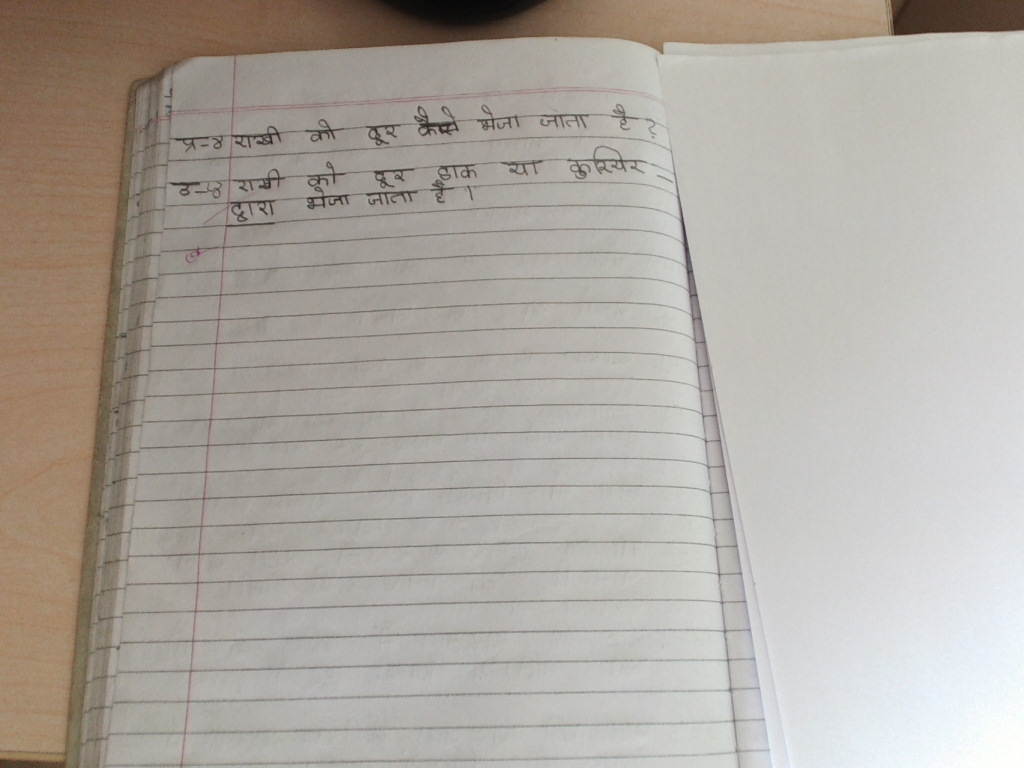 प्र-४ राखी को दूर कैसे भेजा जाता है ?
उ-४ राखी को दूर डाक या कुरियर -
द्वारा भेजा जाता है ।